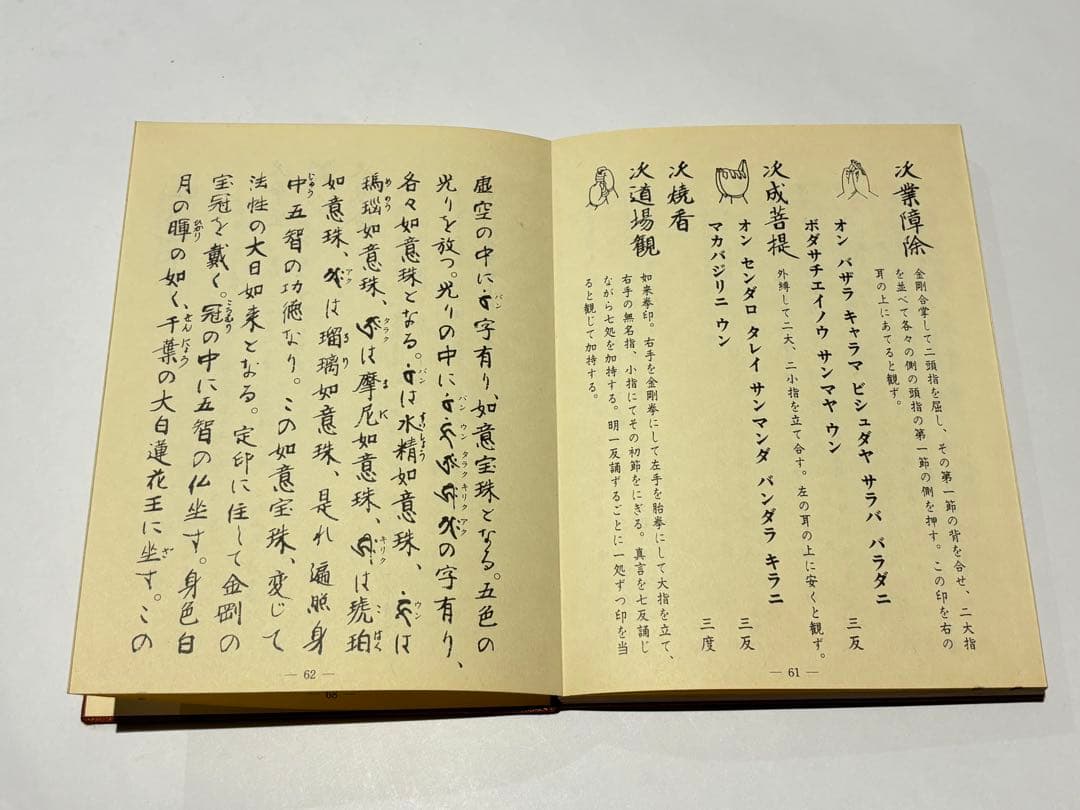 次業障除
金剛合掌して二頭指を屈し、その第一節の背を合せ、二大指
を並べて各々の側の頭指の第一節の側を押す。この印を右の
耳の上にあてると観ず。
オン バザラ キャラマ ビシュダヤ サラバ バラダニ
ボダサチエイノウ サンマヤ ウン
三反
次成菩提
外縛して二大、二小指を立て合す。左の耳の上に安くと観ず。
オン センダロ タレイ サンマンダ バンダラ キラニ
三反
マカバジリニ ウン
三度
次焼香
次道場観
如来拳印。右手を金剛拳にして左手を胎拳にして大指を立て、
右手の無名指、小指にてその初節をにぎる。真言を七反誦じ
ながら七処を加持する。明一反誦ずるごとに一処ずつ印を当
ると観じて加持する。
— 61 —
バン
虚空の中に𑖪𑖽字有り、如意宝珠となる。五色の
バン ウン タラク キリク アク
光りを放つ。光りの中に𑖪𑖽𑖮𑗝𑖽𑖝𑖿𑖨𑖯𑖾𑖮𑖿𑖨𑖱𑖾𑖀𑖾の字有り、
バン すいしょう ウン
各々如意珠となる。𑖪𑖽は水精如意珠、𑖮𑗝𑖽は
めのう タラク まに キリク こはく
瑪瑙如意珠、𑖝𑖿𑖨𑖯𑖾は摩尼如意珠、𑖮𑖿𑖨𑖱𑖾は琥珀
アク るり
如意珠、𑖀𑖾は瑠璃如意珠、是れ遍照身
じゅう
中五智の功徳なり。この如意宝珠、変じて
法性の大日如来となる。定印に住して金剛の
こうむり
宝冠を戴く。冠の中に五智の仏坐す。身色白
ひかり せんにょう ざ
月の暉の如く、千葉の大白蓮花王に坐す。この
— 62 —
68